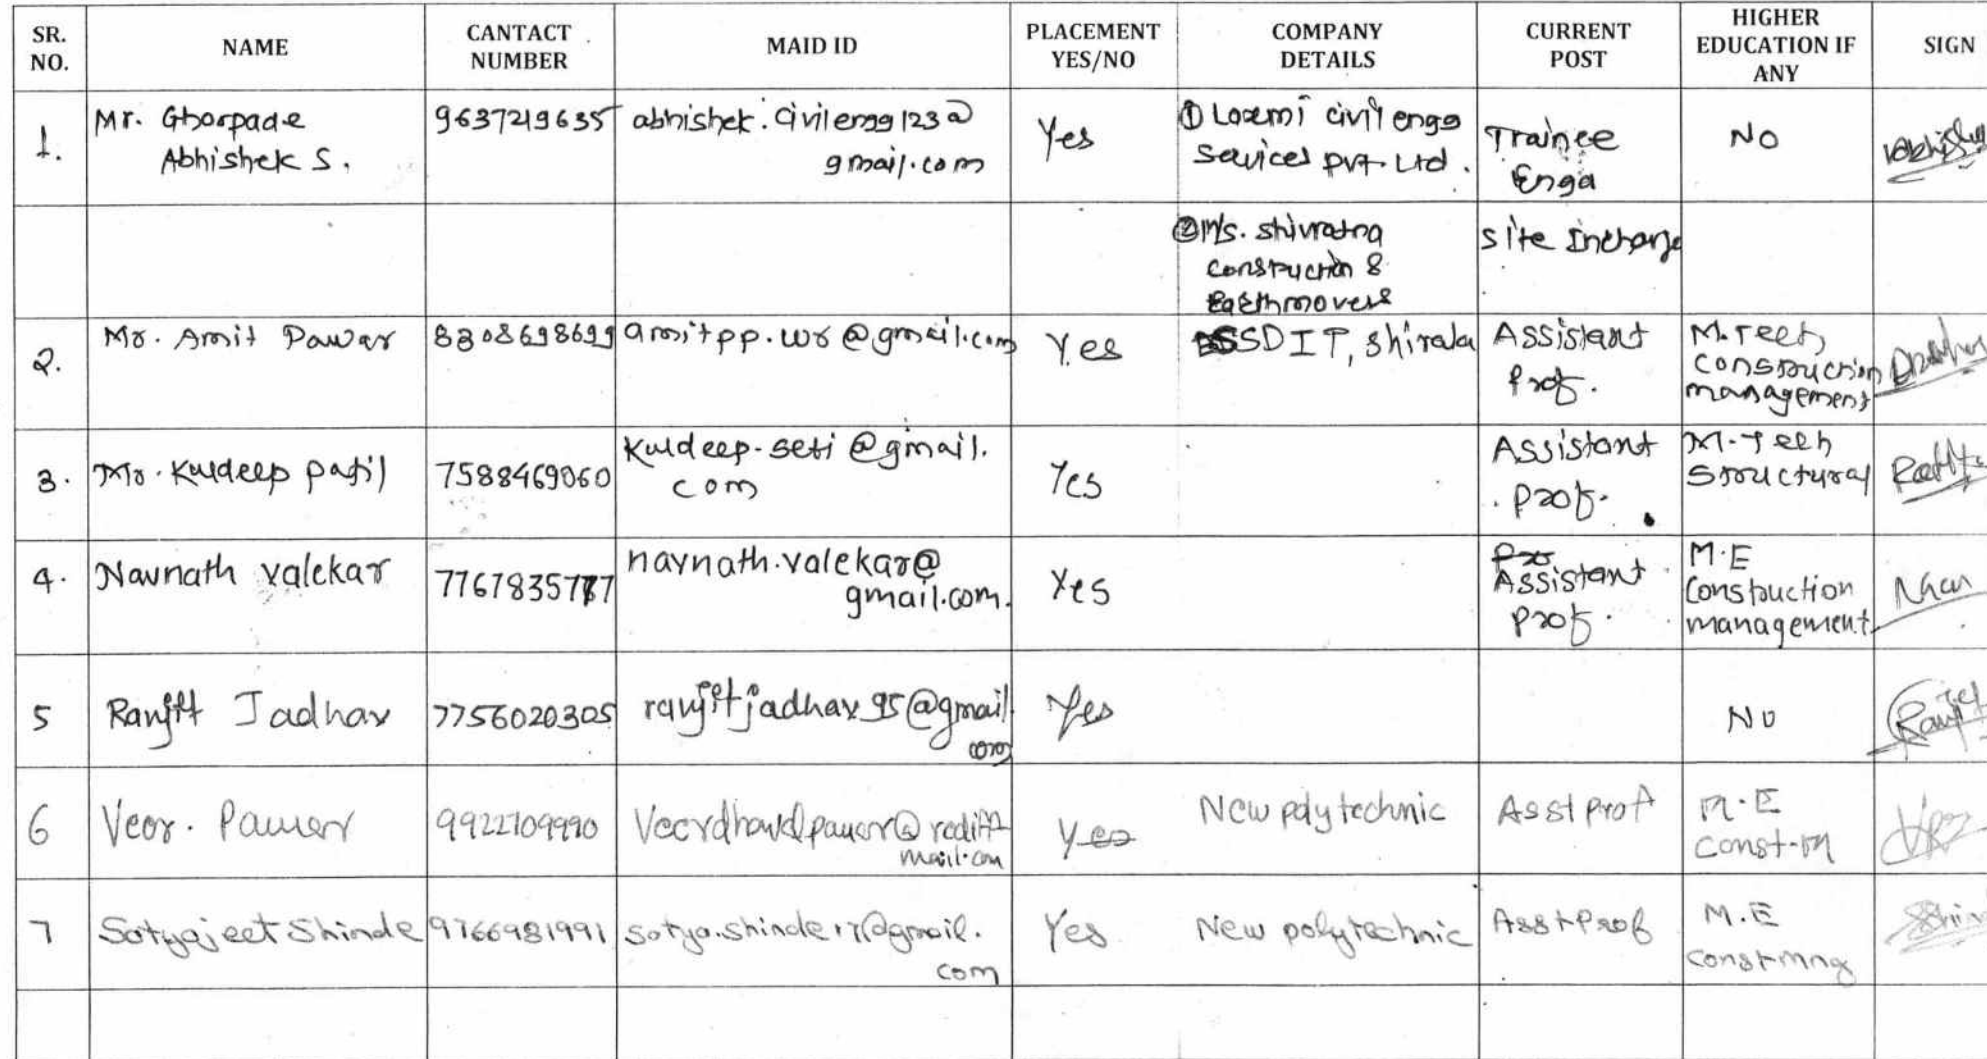 SR. NO. NAME CANTACT NUMBER MAID ID PLACEMENT YES/NO COMPANY DETAILS CURRENT POST HIGHER EDUCATION IF ANY SIGN
1. Mr. Ghorpade Abhishek S. 9637219635 abhishek.civilengg123@gmail.com Yes ① Laxmi civil engg Services pvt. Ltd. Trainee Engg No
② M/s. shivratna construction & Earthmovers site Incharge
2. Mr. Amit Pawar 8308698699 amitpp.wr@gmail.com Yes SSDIT, shirala Assistant Prof. M.Tech, construction management
3. Mr. Kuldeep patil 7588469060 Kuldeep.seti@gmail.com Yes Assistant prof. M-Tech Structural
4. Navnath valekar navnath.valekar@gmail.com. Yes Assistant prof. M.E Construction management
5 Ranjit Jadhav 7756020305 ranjitjadhav95@gmail.com Yes No
6 Veer. Pawar 9922109990 Yes New polytechnic Asst prof M.E const-m
7 Satyajeet Shinde 9766981991 satya.shinde17@gmail.com Yes New polytechnic Asst Prof M.E const mng